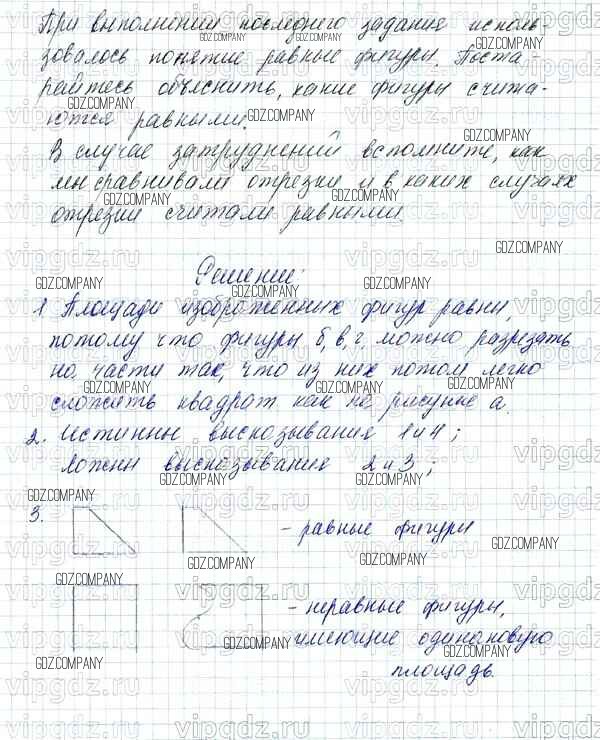 При выполнении последнего задания исполь-
зовалось понятие равные фигуры. Поста-
райтесь объяснить, какие фигуры счита-
ются равными.
В случае затруднений вспомните, как
мы сравнивали отрезки и в каких случаях
отрезки считали равными.
Решение:
1 Площади изображенных фигур равны,
потому что фигуры б, в, г можно разрезать
на части так, что из них потом легко
сложить квадрат как на рисунке а.
2. Истинны высказывания 1 и 4;
ложны высказывания 2 и 3;
3.
- равные фигуры
- неравные фигуры,
имеющие одинаковую
площадь.
GDZ.COMPANY
vipgdz.ru